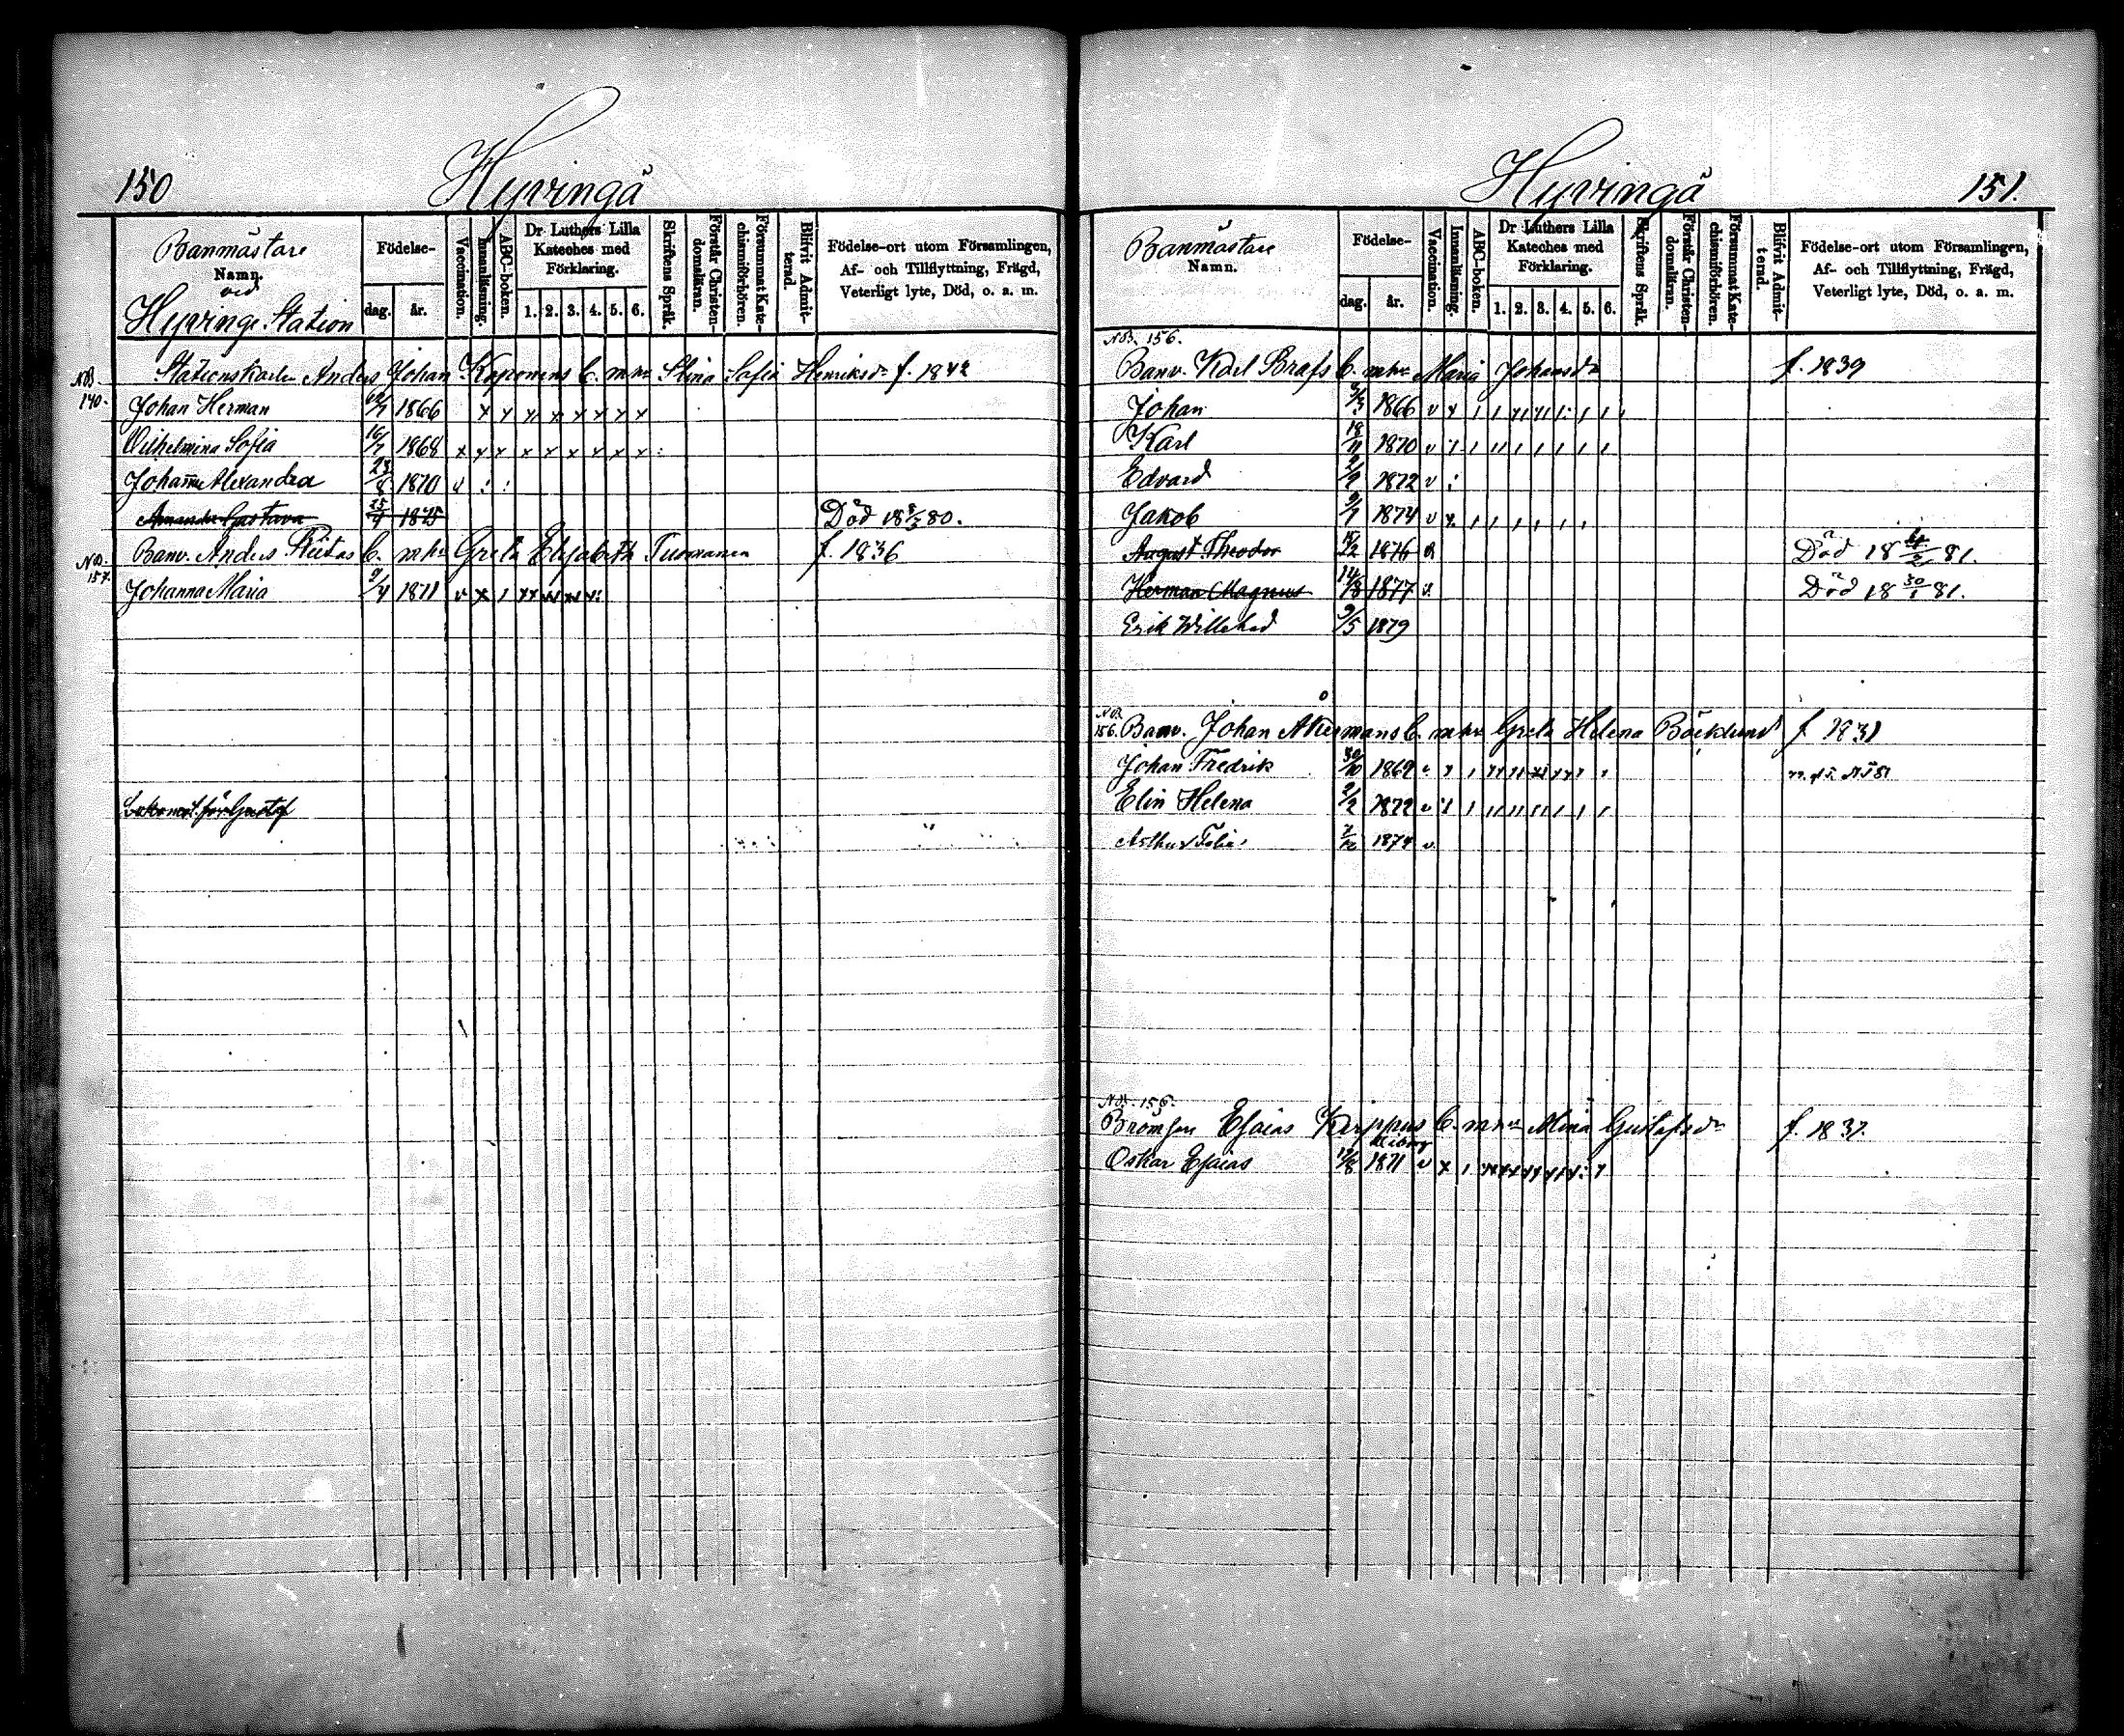 150
Hyvingä
Banmästare
Namn.
vid
Hyvinge Station
Födelse-
dag.
år.
Vaccination.
Innanläsning.
ABC-boken.
Dr Luthers Lilla
Kateches med
Förklaring.
1. 2. 3. 4. 5. 6.
Skriftens Språk.
Förstår Christen-
domsläran.
Försummat Kate-
chismiförhören.
Blifvit Admit-
terad.
Födelse-ort utom Församlingen,
Af- och Tillflyttning, Frägd,
Veterligt lyte, Död, o. a. m.
Stationskarlen Anders Johan Koponens b. m. hu Stina Sofia Henriksdr f. 1842
No 140.
Johan Herman 1866 x x x x x x x x
Wilhelmina Sofia 16/7 1868 x x x x x x x x x
Johanna Alexandra 23/8 1870 v
Amanda Gustava 25/4 1875 Död 18 80.
No 157.
Banv. Anders b. m. hu Greta Elisabeth Tuomanen f. 1836
Johanna Maria 9/4 1871 v x
151.
Hyvingä
Banmästare
Namn.
Födelse-
dag.
år.
Vaccination.
Innanläsning.
ABC-boken.
Dr Luthers Lilla
Kateches med
Förklaring.
1. 2. 3. 4. 5. 6.
Skriftens Språk.
Förstår Christen-
domsläran.
Försummat Kate-
chismiförhören.
Blifvit Admit-
terad.
Födelse-ort utom Församlingen,
Af- och Tillflyttning, Frägd,
Veterligt lyte, Död, o. a. m.
No. 156.
Banv. Karl b. m. hu Maria Johansdr f. 1839
Johan 1866 v
Karl 18/11 1870 v
Edvard 1872 v
Jakob 1874 v
August Theodor 1876 Död 18 81.
Herman Magnus 14/8 1877 v Död 18 30/1 81.
Erik Willehad 9/5 1879
No 156.
Banv. Johan Åkermans b. m. hu Greta Helena Böcklund f 1831
Johan Fredrik 30/10 1869
Elin Helena 2/2 1872 v
Arthur 1874 v
No. 155.
Bromsen Esaias Kerppus b. m. hu Mina Gustafsdr f. 1837.
Oskar Esaias 1871 v x